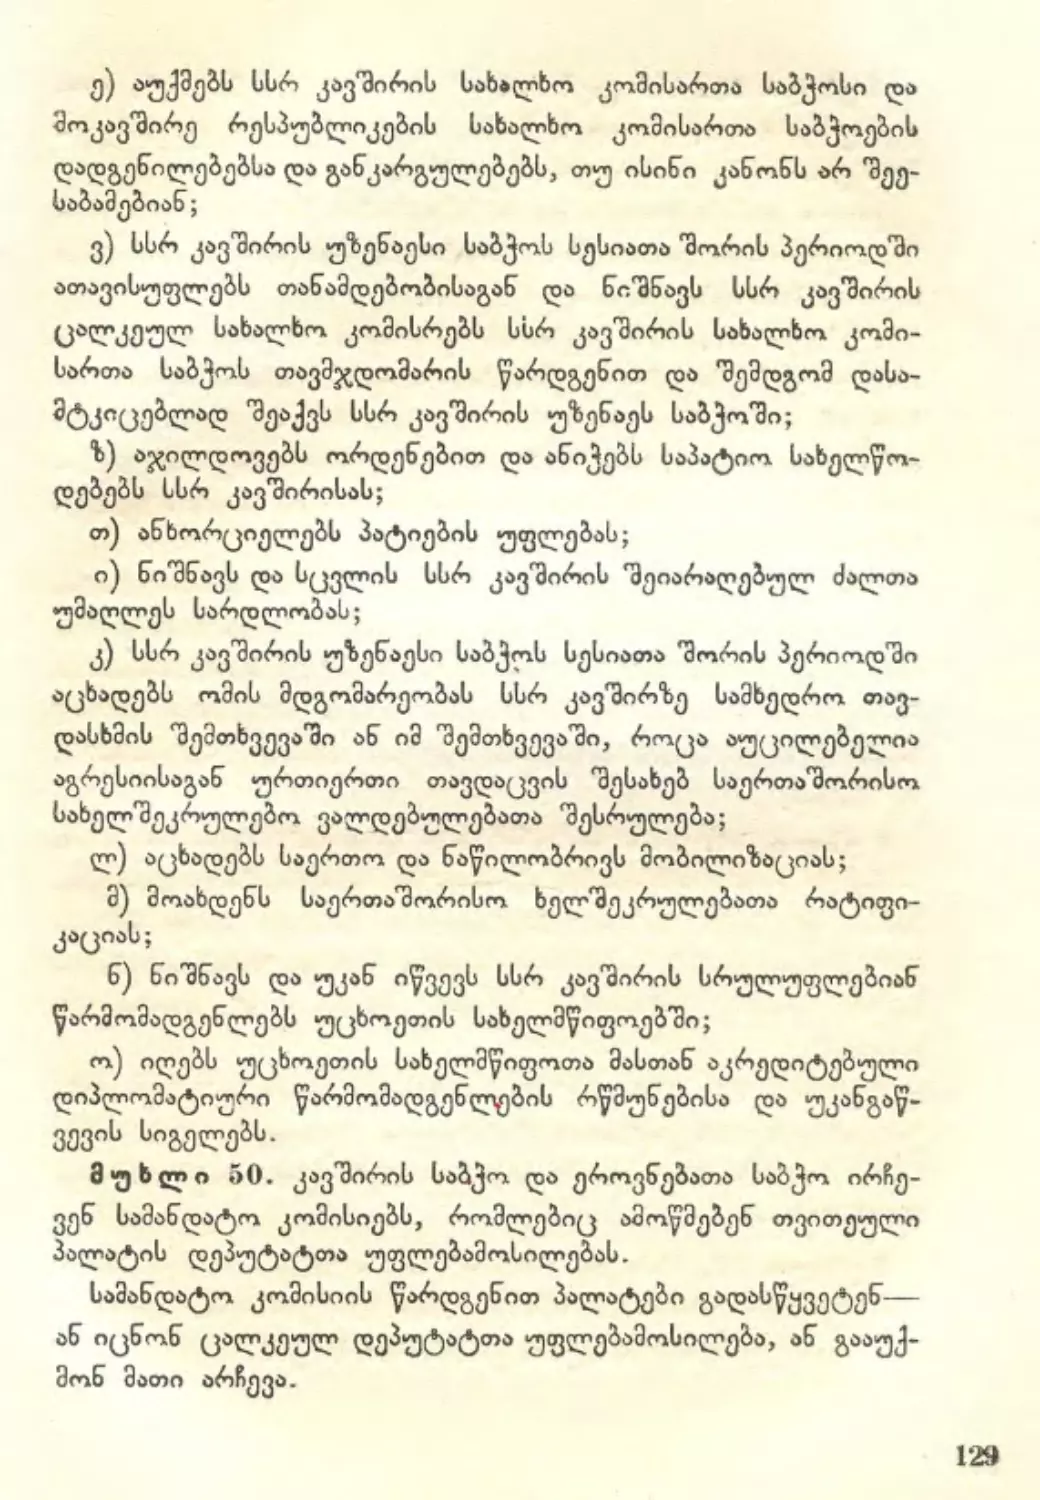 ე) აუქმებს სსრ კავშირის სახალხო კომისართა საბჭოსი და
მოკავშირე რესპუბლიკების სახალხო კომისართა საბჭოების
დადგენილებებსა და განკარგულებებს, თუ ისინი კანონს არ შეე-
საბამებიან;
ვ) სსრ კავშირის უზენაესი საბჭოს სესიათა შორის პერიოდში
ათავისუფლებს თანამდებობისაგან და ნიშნავს სსრ კავშირის
ცალკეულ სახალხო კომისრებს სსრ კავშირის სახალხო კომი-
სართა საბჭოს თავმჯდომარის წარდგენით და შემდგომ დასა-
მტკიცებლად შეაქვს სსრ კავშირის უზენაეს საბჭოში;
ზ) აჯილდოვებს ორდენებით და ანიჭებს საპატიო სახელწო-
დებებს სსრ კავშირისას;
თ) ანხორციელებს პატიების უფლებას;
ი) ნიშნავს და სცვლის სსრ კავშირის შეიარაღებულ ძალთა
უმაღლეს სარდლობას;
კ) სსრ კავშირის უზენაესი საბჭოს სესიათა შორის პერიოდში
აცხადებს ომის მდგომარეობას სსრ კავშირზე სამხედრო თავ-
დასხმის შემთხვევაში ან იმ შემთხვევაში, როცა აუცილებელია
აგრესიისაგან ურთიერთი თავდაცვის შესახებ საერთაშორისო
სახელშეკრულებო ვალდებულებათა შესრულება;
ლ) აცხადებს საერთო და ნაწილობრივს მობილიზაციას;
მ) მოახდენს საერთაშორისო ხელშეკრულებათა რატიფი-
კაციას;
ნ) ნიშნავს და უკან იწვევს სსრ კავშირის სრულუფლებიან
წარმომადგენლებს უცხოეთის სახელმწიფოებში;
ო) იღებს უცხოეთის სახელმწიფოთა მასთან აკრედიტებული
დიპლომატიური წარმომადგენლების რწმუნებისა და უკანგაწ-
ვევის სიგელებს.
მუხლი 50. კავშირის საბჭო და ეროვნებათა საბჭო ირჩე-
ვენ სამანდატო კომისიებს, რომლებიც ამოწმებენ თვითეული
პალატის დეპუტატთა უფლებამოსილებას.
სამანდატო კომისიის წარდგენით პალატები გადასწყვეტენ—
ან იცნონ ცალკეულ დეპუტატთა უფლებამოსილება, ან გააუქ-
მონ მათი არჩევა.
129